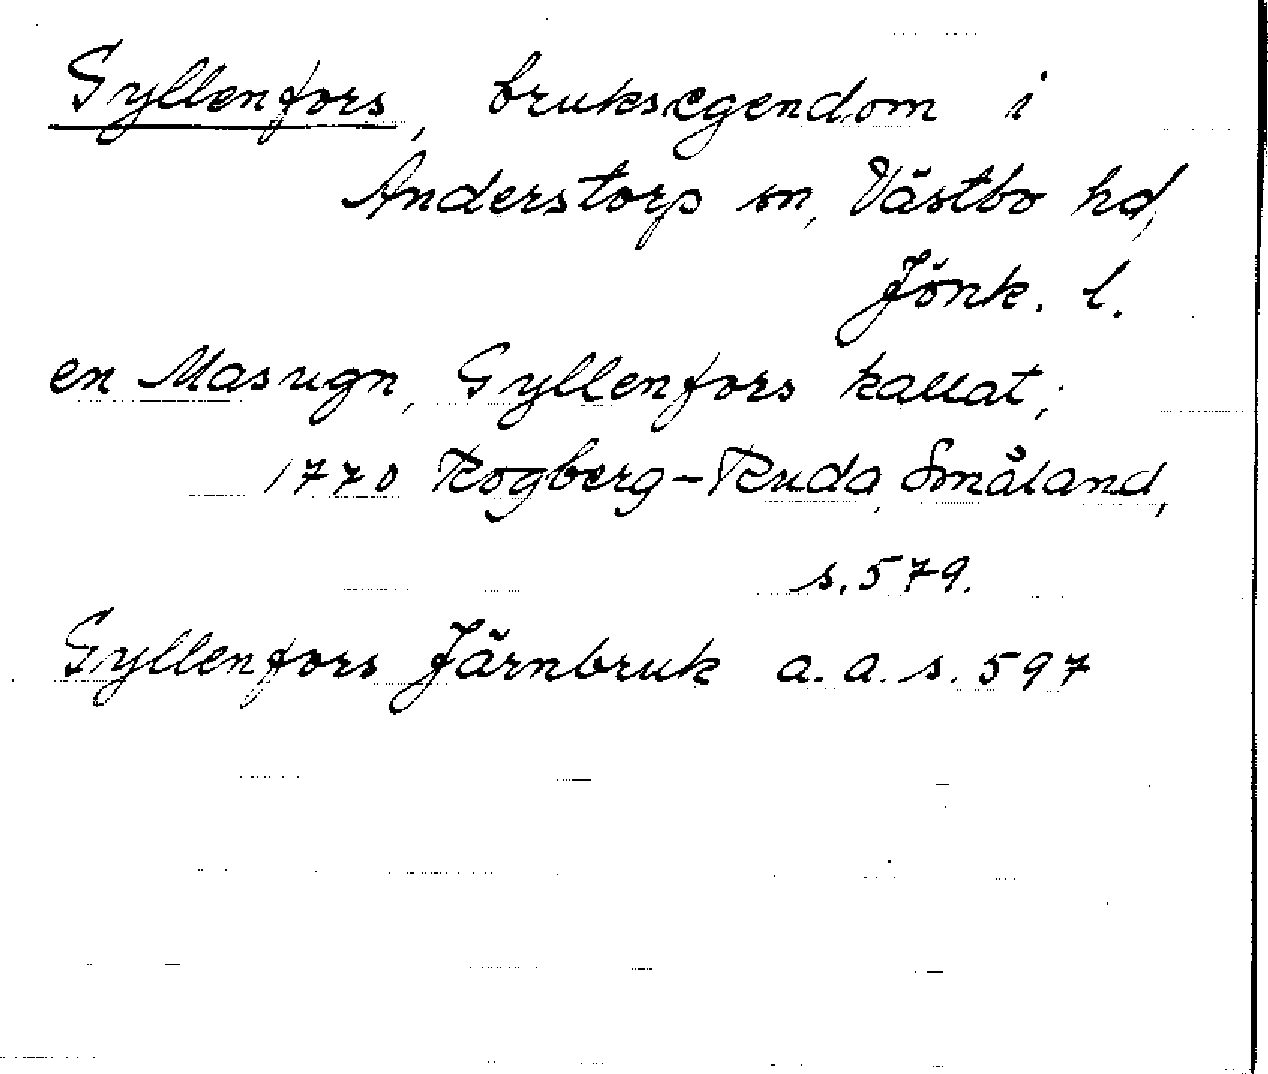 Gyllenfors, bruksegendom i
Anderstorp sn, Västbo hd,
Jönk. l.
en Masugn, Gyllenfors kallat;
1770 Rogberg-Ruda, Småland,
s. 579.
Gyllenfors Järnbruk a. a. s. 597